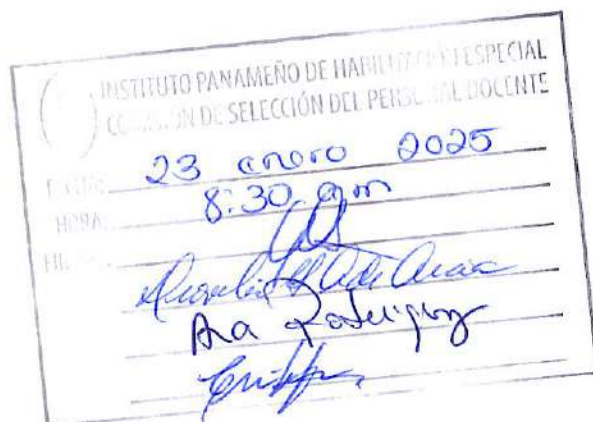 INSTITUTO PANAMEÑO DE HABILITACIÓN ESPECIAL
COMISIÓN DE SELECCIÓN DEL PERSONAL DOCENTE
FECHA: 23 enero 2025
HORA: 8:30 am
Ana Rodríguez